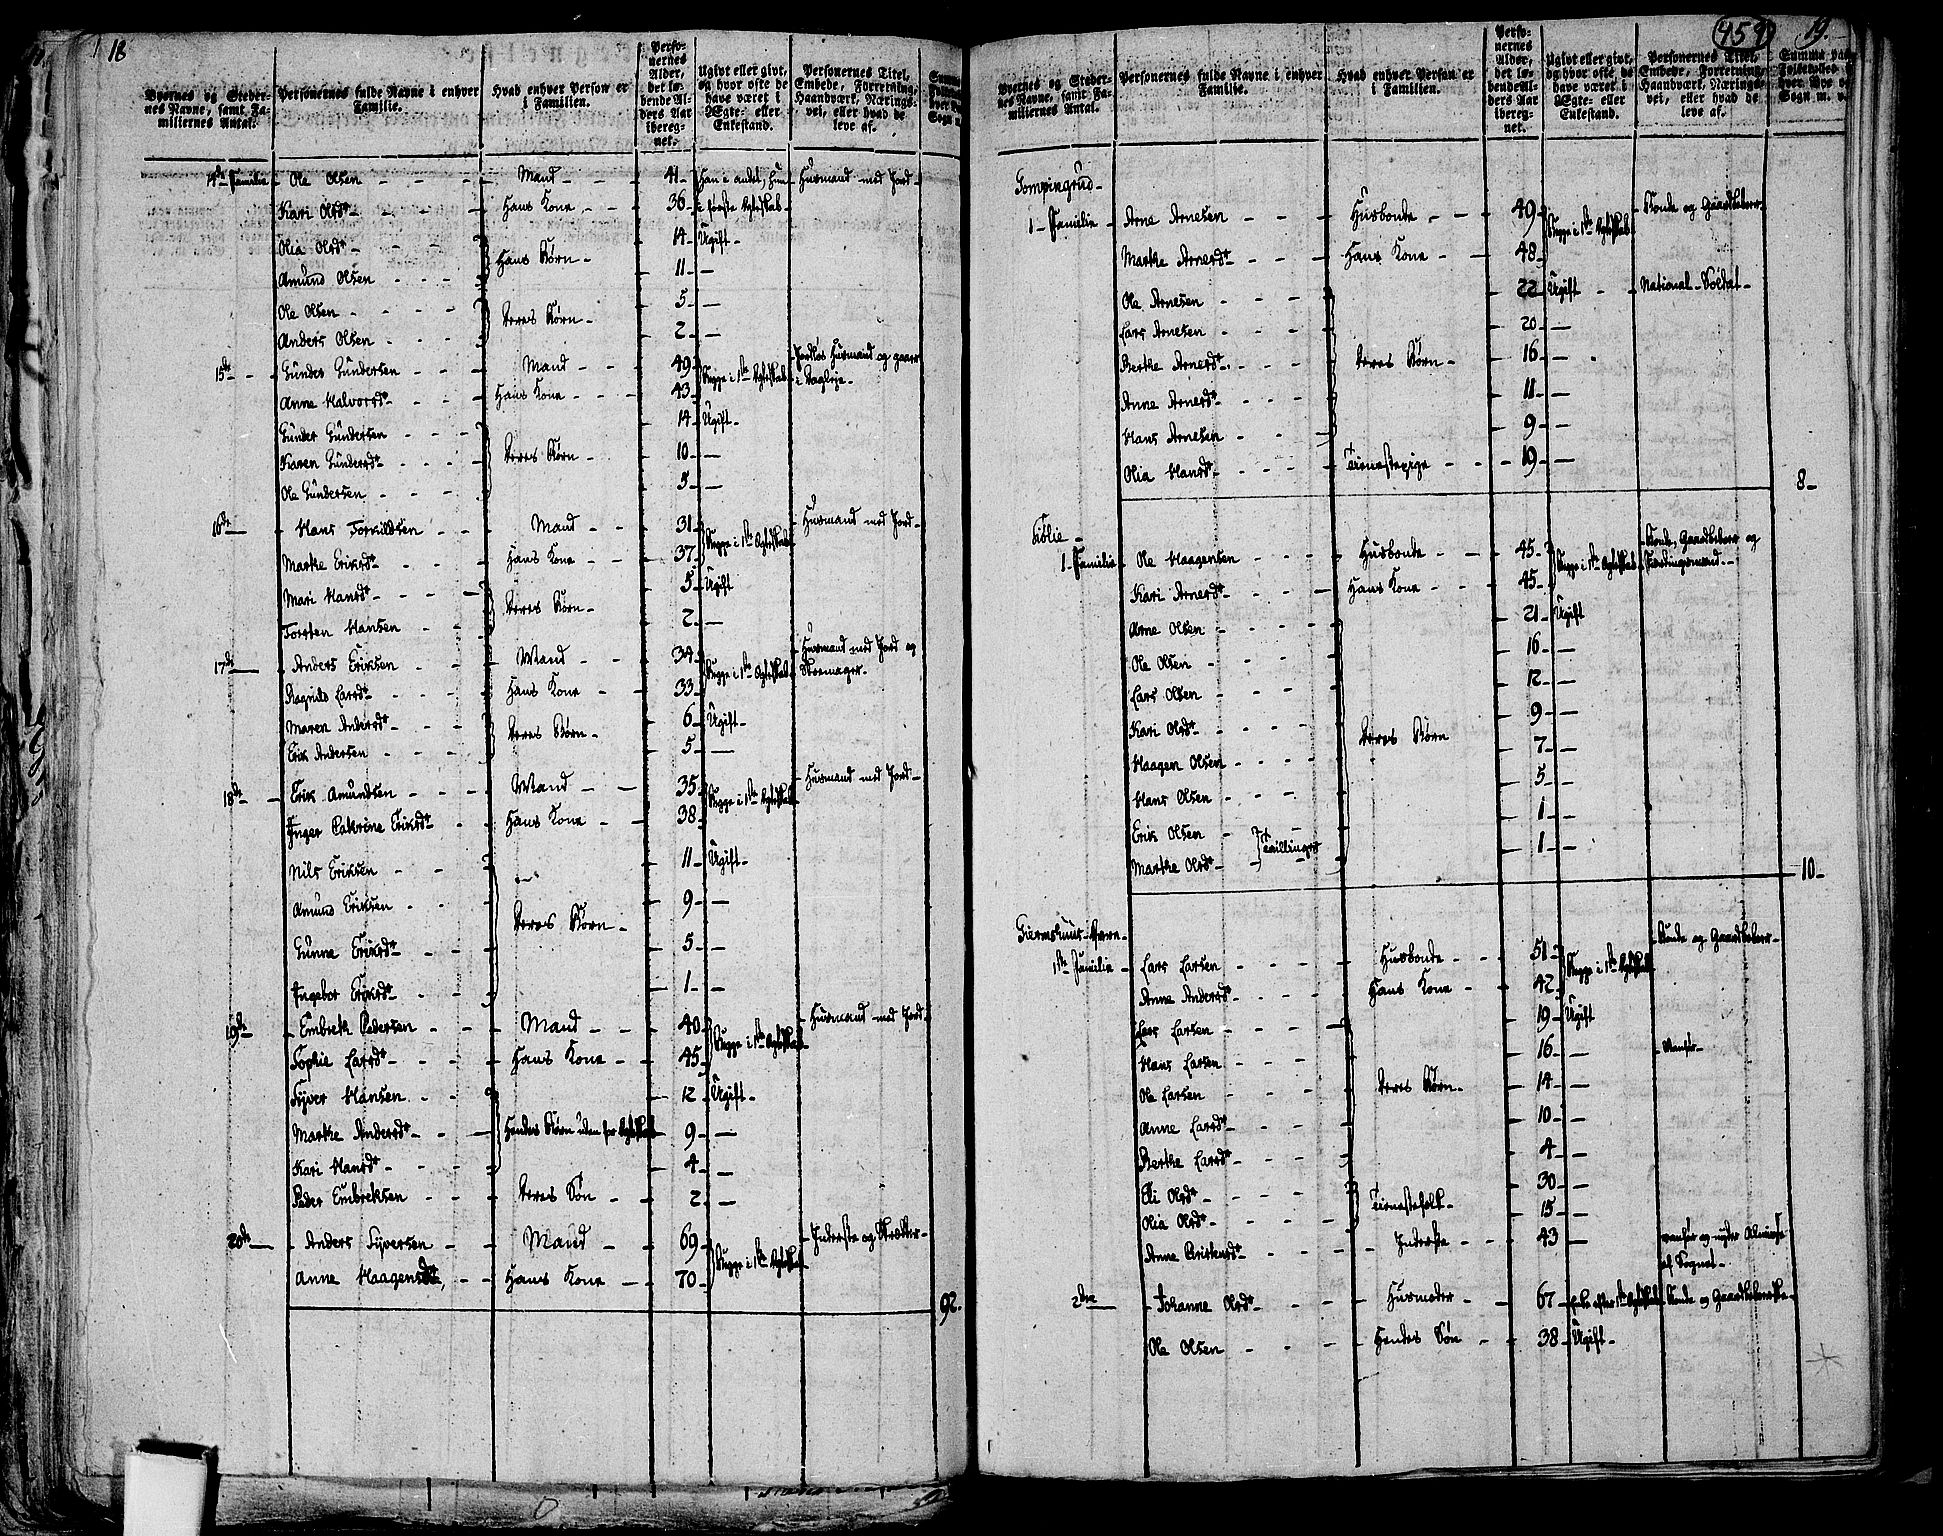 18
Byernes og Stedernes Navne, samt Familiernes Antal.
Personernes fulde Navne i enhver Familie.
Hvad enhver Person er i Familien.
Personernes Alder, det løbende Alders Aar iberegnet.
Ugivt eller givt, og hvor ofte de have været i Ægte- eller Enkestand.
Personernes Titel, Embede, Forretning, Haandværk, Næringsvei, eller hvad de leve af.
14de Familie - Ole Olsen - Mand - 41 - Han i andet, hun - Huusmand med Jord -
Kari Olsdr - Hans Kone - 36 - i første Ægteskab -
Olia Olsdr - Hans Børn - 14 - Ugift -
Amund Olsen - 11 - —
Ole Olsen - Deres Børn - 5 - —
Anders Olsen - 2 - —
15de - Gunder Gundersen - Mand - 49 - Begge i 1ste Ægteskab - Jordløs Huusmand og gaaer i Dagleje -
Anne Halvorsdr - Hans Kone - 43 -
Gunder Gundersen - Deres Børn - 14 - Ugift -
Karen Gundersdr - 10 - —
Ole Gundersen - 5 - —
16de - Hans Torkildsen - Mand - 31 - Begge i 1ste Ægteskab - Huusmand med Jord -
Marthe Eriksdr - Hans Kone - 37 -
Mari Hansdr - Deres Børn - 5 - Ugift
Torsten Hansen - 2 - —
17de - Anders Eriksen - Mand - 34 - Begge i 1ste Ægteskab - Huusmand med Jord og Skoemager -
Ragnild Larsdr - Hans Kone - 33 -
Maren Andersdr - Deres Børn - 6 - Ugift -
Erik Andersen - 5 - —
18de - Erik Amundsen - Mand - 35 - Begge i 1ste Ægteskab - Huusmand med Jord -
Inger Cathrine Eriksdr - Hans Kone - 38 -
Nils Eriksen - Deres Børn - 11 - Ugift -
Amund Eriksen - 9 - —
Gunne Eriksdr - 5 - —
Ingebor Eriksdr - 1 - —
19de - Embrek Pedersen - Mand - 40 - Begge i 1ste Ægteskab - Huusmand med Jord -
Sophie Larsdr - Hans Kone - 45 -
Syver Hansen - Hendes Børn uden for Ægteskab - 12 - Ugift -
Marthe Andersdr - 9 - —
Kari Hansdr - 4 - —
Peder Embreksen - Deres Søn - 2 - —
20de - Anders Syversen - Mand - 69 - Begge i 1ste Ægteskab - Inderste og Skrædder -
Anne Haagensdr - Hans Kone - 70 -
92.
459
19.
Byernes og Stedernes Navne, samt Familiernes Antal.
Personernes fulde Navne i enhver Familie.
Hvad enhver Person er i Familien.
Personernes Alder, det løbende Alders Aar iberegnet.
Ugivt eller givt, og hvor ofte de have været i Ægte- eller Enkestand.
Personernes Titel, Embede, Forretning, Haandværk, Næringsvei, eller hvad de leve af.
Gompingrud -
1 - Familie - Arne Arnesen - Huusbonde - 49 - Begge i 1ste Ægteskab - Bonde og Gaardbeboer -
Marthe Arnesdr - Hans Kone - 48 -
Ole Arnesen - Deres Børn - 22 - Ugift - National-Soldat -
Lars Arnesen - 20 - —
Berthe Arnesdr - 16 - —
Anne Arnesdr - 11 - —
Hans Arnesen - 9 - —
Olia Hansdr - Tienestepige - 19 - —
8 -
1 - Familie - Ole Haagensen - Huusbonde - 45 - Begge i 1ste Ægteskab - Bonde, Gaardbeboer og
Kari Arnesdr - Hans Kone - 45 -
Arne Olsen - Deres Børn - 21 - Ugift
Ole Olsen - 16 - —
Lars Olsen - 12 - —
Kari Olsdr - 9 - —
Haagen Olsen - 7 - —
Hans Olsen - 5 - —
Erik Olsen - Tvillinger - 1 - —
Marthe Olsdr - 1 - —
10 -
1ste Familie - Lars Larsen - Huusbonde - 51 - Begge i 1ste Ægteskab - Bonde og Gaardbeboer -
Anne Andersdr - Hans Kone - 42 -
Lars Larsen - Deres Børn - 19 - Ugift
Hans Larsen - 16 - — Vanfør -
Ole Larsen - 14 - —
Anne Larsdr - 10 - —
Berthe Larsdr - 4 - —
Eli Olsdr - Tienestefolk - 30 - —
Olia Olsdr - 15 - —
Anne Christensdr - Inderste - 43 - — vanfør og nyder Almisse af Sognet -
2den - Johanne Olsdr - Huusmoder - 67 - Enke efter 1ste Ægteskab - Bonde og Gaardbeboerske -
Ole Olsen - Hendes Søn - 38 - Ugift -